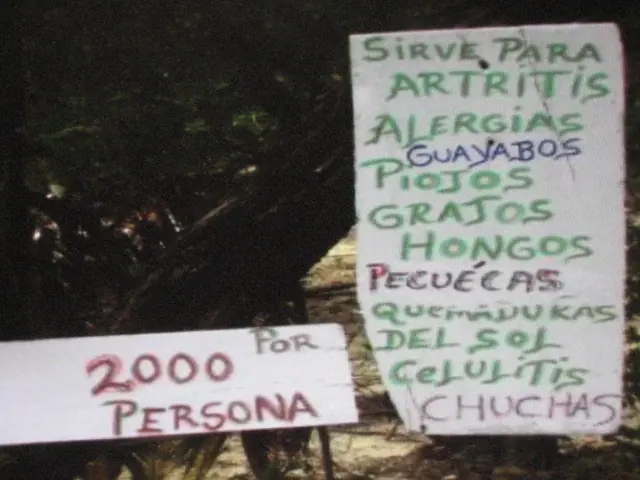 SIRVE PARA
ARTRITIS
ALERGIAS
GUAYABOS
PIOJOS
GRAJOS
HONGOS
PECUÉCAS
QUEMADURAS
DEL SOL
CELULITIS
CHUCHAS
POR
2000
PERSONA